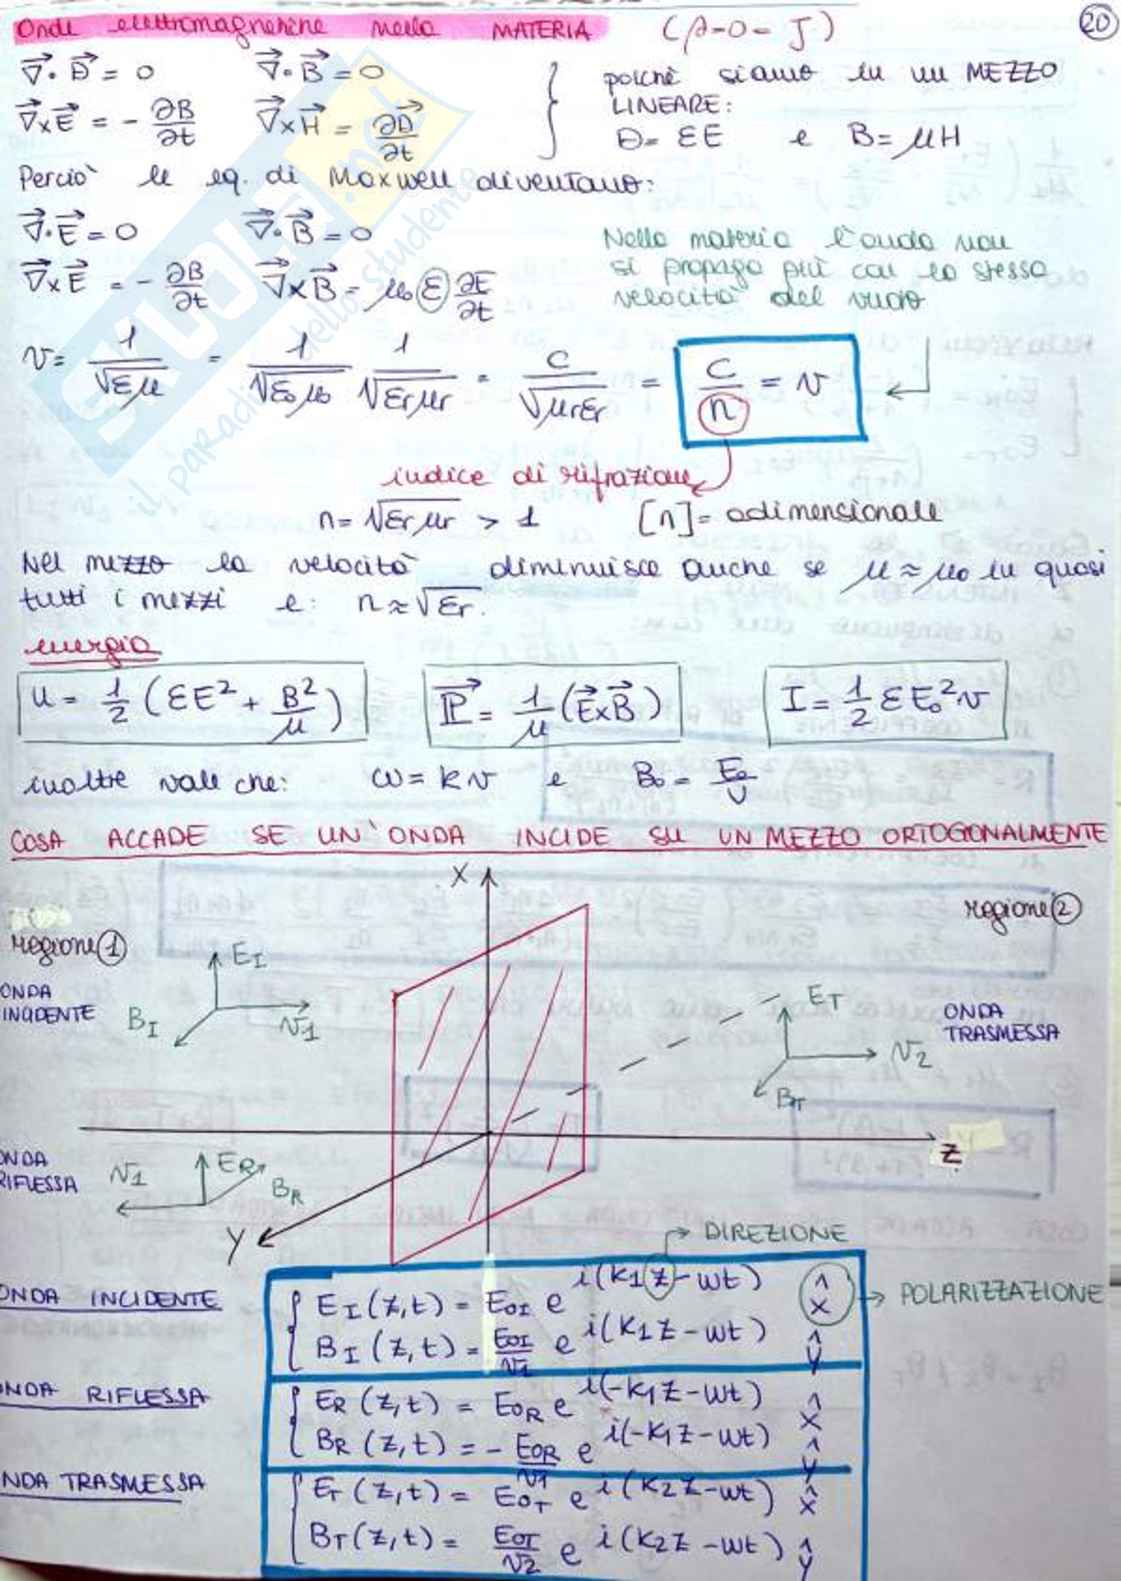 Onde elettromagnetiche nella MATERIA (ρ=0=J) 20
∇·D = 0 ∇·B = 0
∇×E = - ∂B/∂t ∇×H = ∂D/∂t
poichè siamo in un MEZZO
LINEARE:
D= εE e B= μH
Perciò le eq. di Maxwell diventano:
∇·E = 0 ∇·B = 0
∇×E = - ∂B/∂t ∇×B = μ0 ε ∂E/∂t
Nella materia l'onda non
si propaga più con la stessa
velocità del vuoto
v = 1/√εμ = 1/√ε0μ0 1/√εrμr = c/√μrεr = c/n = v
indice di rifrazione
n = √εrμr > 1 [n] = adimensionale
Nel mezzo la velocità diminuisce anche se μ ≈ μ0 in quasi
tutti i mezzi e: n ≈ √εr.
energia
u = 1/2 (εE² + B²/μ) P = 1/μ (E×B) I = 1/2 εE0² v
inoltre vale che: ω = kv e B0 = E0/v
COSA ACCADE SE UN'ONDA INCIDE SU UN MEZZO ORTOGONALMENTE
X
regione 1
regione 2
ONDA
INCIDENTE
EI
BI
v1
ET
v2
BT
ONDA
TRASMESSA
Z
ONDA
RIFLESSA
v1
ER
BR
Y
DIREZIONE
ONDA INCIDENTE
EI (z,t) = E0I e i(k1z-ωt) x̂
POLARIZZAZIONE
BI (z,t) = E0I/v1 e i(k1z-ωt) ŷ
ONDA RIFLESSA
ER (z,t) = E0R e i(-k1z-ωt) x̂
BR (z,t) = - E0R/v1 e i(-k1z-ωt) ŷ
ONDA TRASMESSA
ET (z,t) = E0T e i(k2z-ωt) x̂
BT(z,t) = E0T/v2 e i(k2z-ωt) ŷ
SKUOLA.net
il paradiso dello studente